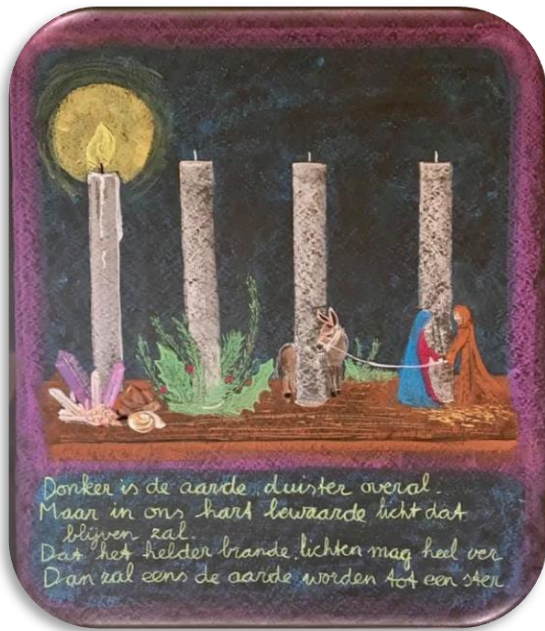 Donker is de aarde, duister overal.
Maar in ons hart bewaarde licht dat
blijven zal.
Dat het helder brande, lichten mag heel ver
Dan zal eens de aarde worden tot een ster